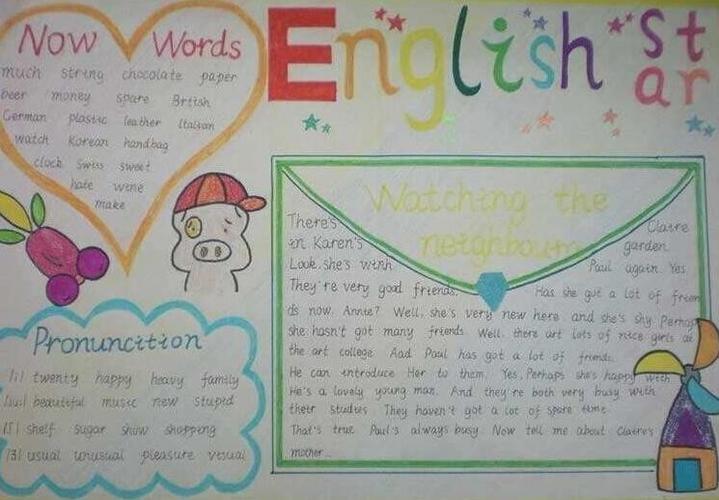 English Star
Now Words
much string chocolate paper
beer money spare British
German plastic leather Italian
watch Korean handbag
clock Swiss sweet
hate wine
make
Pronuncition
/i/ twenty happy heavy family
/ju:/ beautiful music new stupid
/ʃ/ shelf sugar show shopping
/ʒ/ usual unusual pleasure visual
Watching the
neighbours
There's Claire
in Karen's garden.
Look. she's with Paul again Yes.
They're very good friends. Has she got a lot of frien
ds now. Annie? Well, she's very new here and she's shy. Perhap
she hasn't got many friends. Well. there art lots of nice girls at
the art college. Aad Paul has got a lot of friends.
He can introduce Her to them. Yes. Perhaps she's happy with
He's a lovely young man. And they're both very busy with
their studies. They haven't got a lot of spare time.
That's true. Paul's always busy. Now tell me about Claire's
mother...